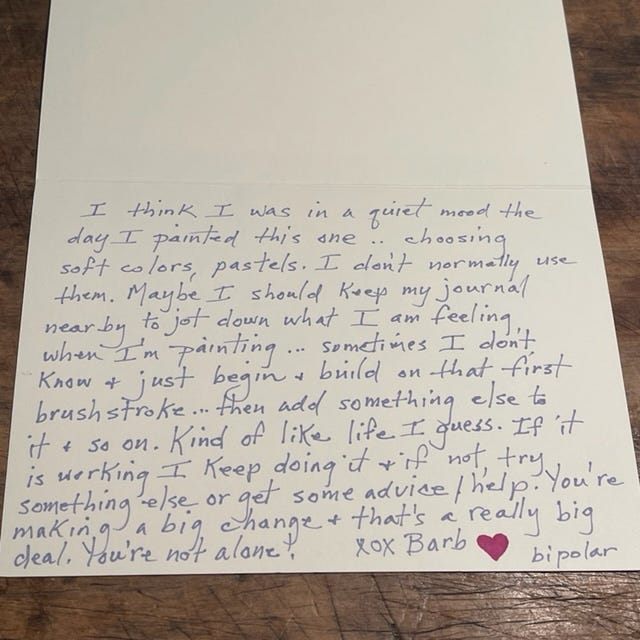 I think I was in a quiet mood the
day I painted this one .. choosing
soft colors, pastels. I don't normally use
them. Maybe I should keep my journal
nearby to jot down what I am feeling
when I'm painting ... sometimes I don't
know + just begin + build on that first
brushstroke ... then add something else to
it + so on. Kind of like life I guess. If it
is working I keep doing it + if not, try
something else or get some advice/help. You're
making a big change + that's a really big
deal. You're not alone! xox Barb ♥ bipolar